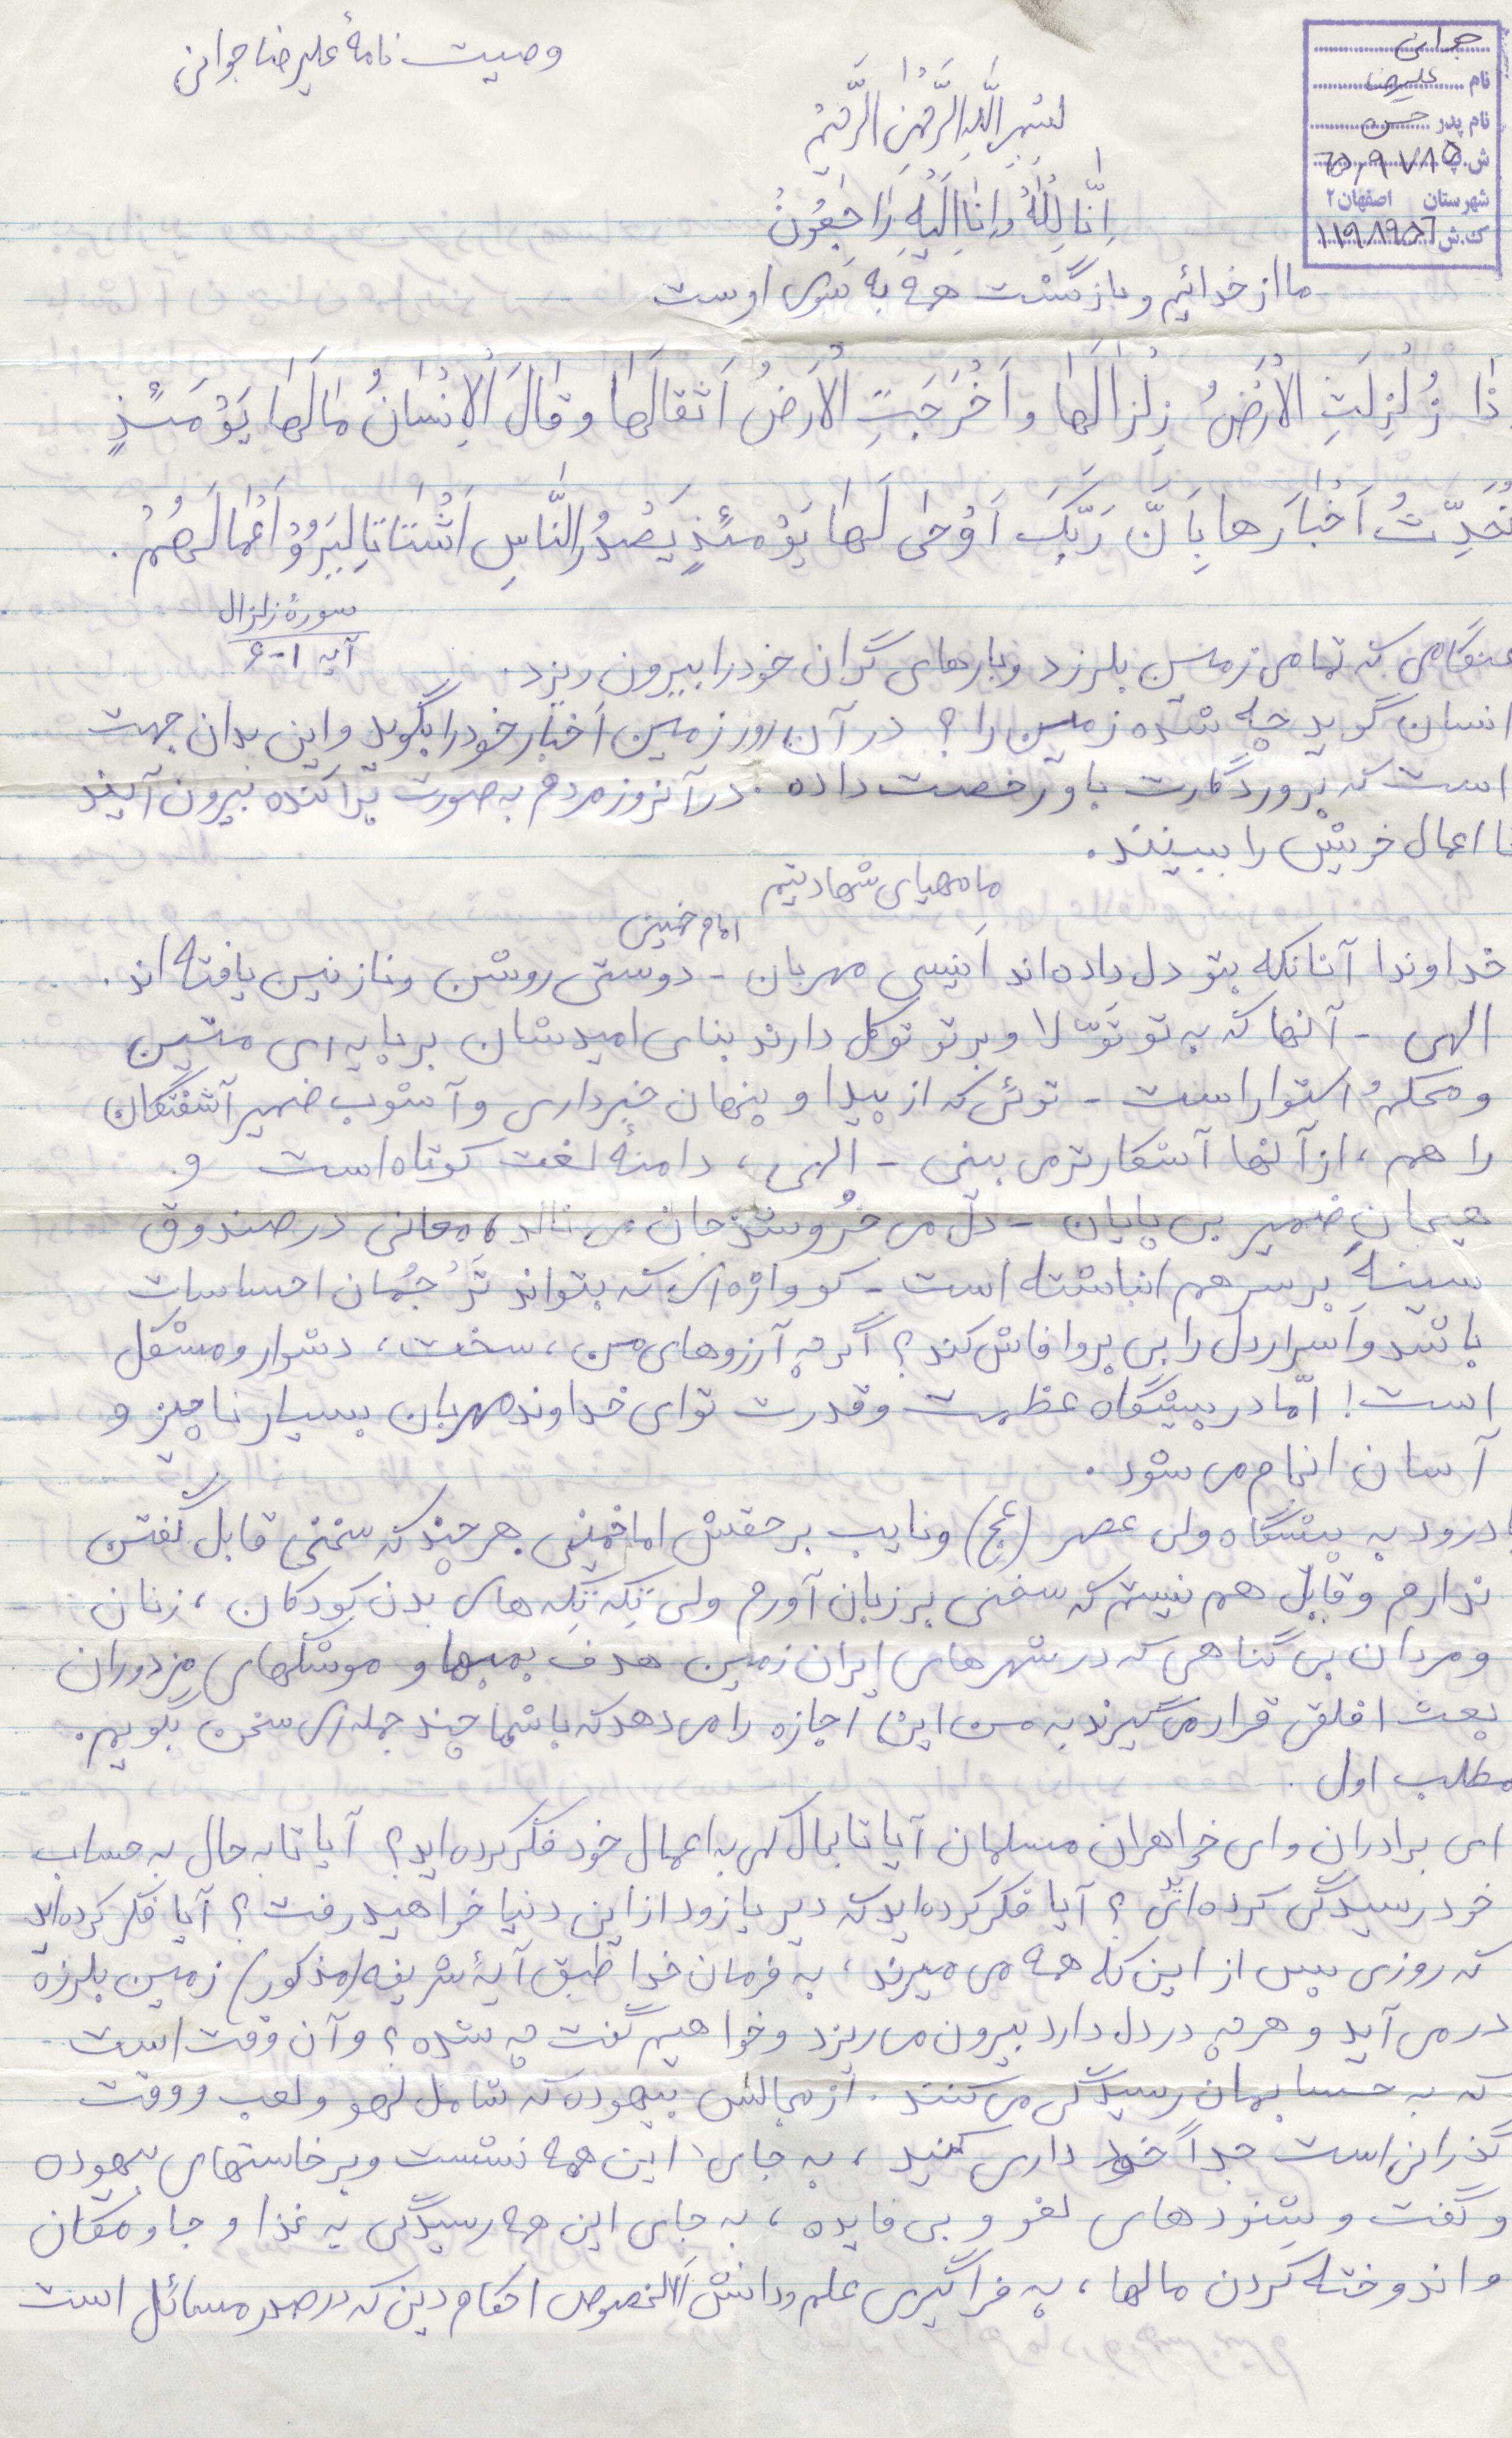 وصیت نامهٔ علیرضا جوانی
جوانی
نام علیرضا
نام پدر حسن
ش.پ ۶۵۰۹۷۸۵
شهرستان اصفهان ۲
ک.ش
بِسْمِ اللَّهِ الرَّحْمٰنِ الرَّحیٖمْ
اِنّٰا لِلّٰهُ وَ اِنّٰا اِلَیْهِ رٰاجِعُونُ
ما از خدائیم و بازگشت همه به سوی اوست
ذٰا زُلْزِلَتِ الْاَرْضُ زِلْزٰالَهٰا و اَخْرَجَتِ الْاَرضُ اَثقالَهٰا و قٰالَ الْاِنْسٰانُ مٰالَهٰا یَوْمَئِذٍ
تُحَدِّثُ اَخْبٰارَها بِاَنَّ رَبَّکَ اَوْحیٰ لَهٰا یَوْمَئِذٍ یَصْدُرُ النّٰاسِ اَشْتٰاتا لِیَرَوُاْ اَعْمٰالَهُمْ .
سورهٔ زلزال
آیه ۱-۶
هنگامی که تمامی زمین بلرزد و بارهای گران خود را بیرون ریزد.
انسان گوید چه شده زمین را؟ در آن روز زمین اَخبار خود را بگوید و این بدان جهت
است که پروردگارت باو رخصت داده . در آنروز مردم به صورت پراکنده بیرون آیند
تا اعمال خویش را ببینند.
ما مهیای شهادتیم
امام خمینی
خداوندا آنانکه بتو دل داده‌اند اَنیسی مهربان - دوستی روشن و نازنین یافته‌اند .
الهی - آنها که به تو تَوّلا و بر تو توکل دارند بنای امیدشان بر پایه‌ای متین
و محکم و استوار است - توئی که از پیدا و پنهان خبر داری و آشوب ضمیر آشفتگان
را هم، از آنها آشکارتر می بینی - الهی، دامنهٔ لغت کوتاه است و
هیجانِ ضمیر بی پایان - دل می خُروشد جان می نالد، معانی در صندوق
سینه بر سر هم انباشته است - کو واژه‌ای که بتواند تَرْجُمان احساسات
باشد و اَسرار دل را بی پروا فاش کند؟ اگر چه آرزوهای من، سخت، دشوار و مشکل
است! امّا در پیشگاه عظمت و قدرت تو ای خداوند مهربان بسیار ناچیز و
آسان انجام می شود .
با درود به پیشگاه ولی عصر (عج) و نایب بر حقش امام خمینی هر چند که سخنی قابل گفتن
ندارم و قابل هم نیستم که سخنی بر زبان آورم ولی تکه تکه های بدن کودکان، زنان
و مردان بی گناهی که در شهرهای ایران زمین هدف بمبها و موشکهای مزدوران
بعث افلقی قرار می گیرند به من این اجازه را می دهد که با شما چند جمله‌ای سخن بگویم.
مطلب اول
ای برادران و ای خواهران مسلمان آیا تا بحال کمی به اعمال خود فکر کرده اید؟ آیا تا به حال به حساب
خود رسیدگی کرده‌ائید؟ آیا فکر کرده‌اید که دیر یا زود از این دنیا خواهید رفت؟ آیا فکر کرده‌اید
که روزی پس از این که همه می میرند، به فرمان خدا طبق آیهٔ شریفه (مذکور) زمین بلرزه
در می آید و هر چه در دل دارد بیرون می ریزد و خواهیم گفت چه شده؟ و آن وقت است
که به حسابمان رسیدگی می کنند . از مجالس بیهوده که شامل لهو و لعب و وقت
گذرانی است جداً خود داری کنید، به جای این همه نشست و برخاستهای بیهوده
و گفت و شنودهای لغو و بی فایده، به جای این همه رسیدگی به غذا و جا و مکان
و اندوخته کردن مالها، به فراگیری علم و دانش اَلالخصوص احکام دین که در صدر مسائل است